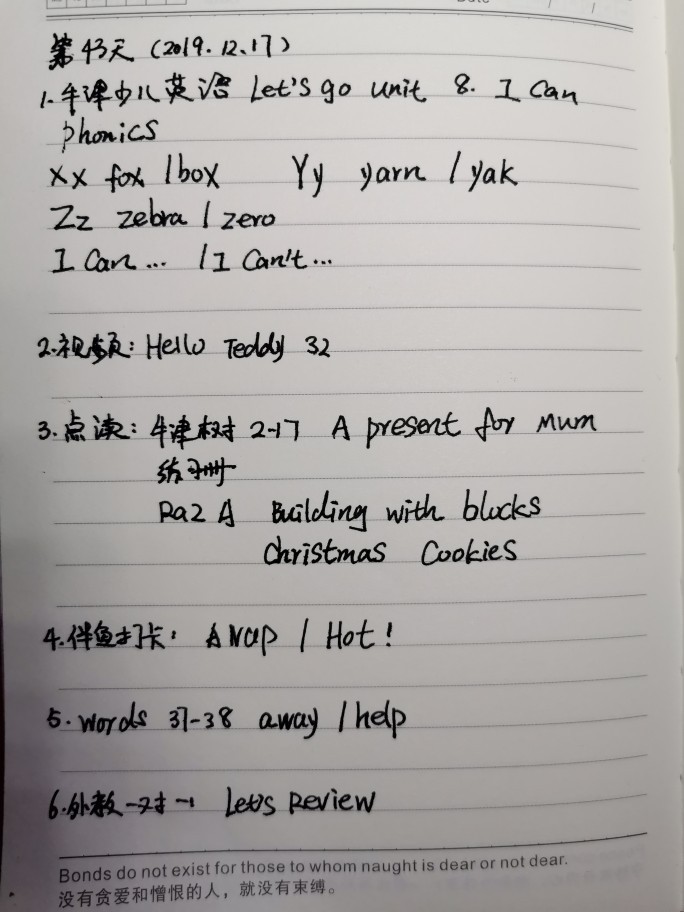 第43天 (2019.12.17)
1.牛津少儿英语 Let's go unit 8. I Can
phonics
Xx fox / box Yy yarn / yak
Zz zebra / zero
I Can ... / I Can't ...
2.视频: Hello Teddy 32
3.点读: 牛津树 2-17 A present for Mum
练习册
Raz A Building with blocks
Christmas Cookies
4.伴鱼打卡: A Nap / Hot!
5. words 37-38 away / help
6.外教一对一 Let's Review
Bonds do not exist for those to whom naught is dear or not dear.
没有贪爱和憎恨的人，就没有束缚。